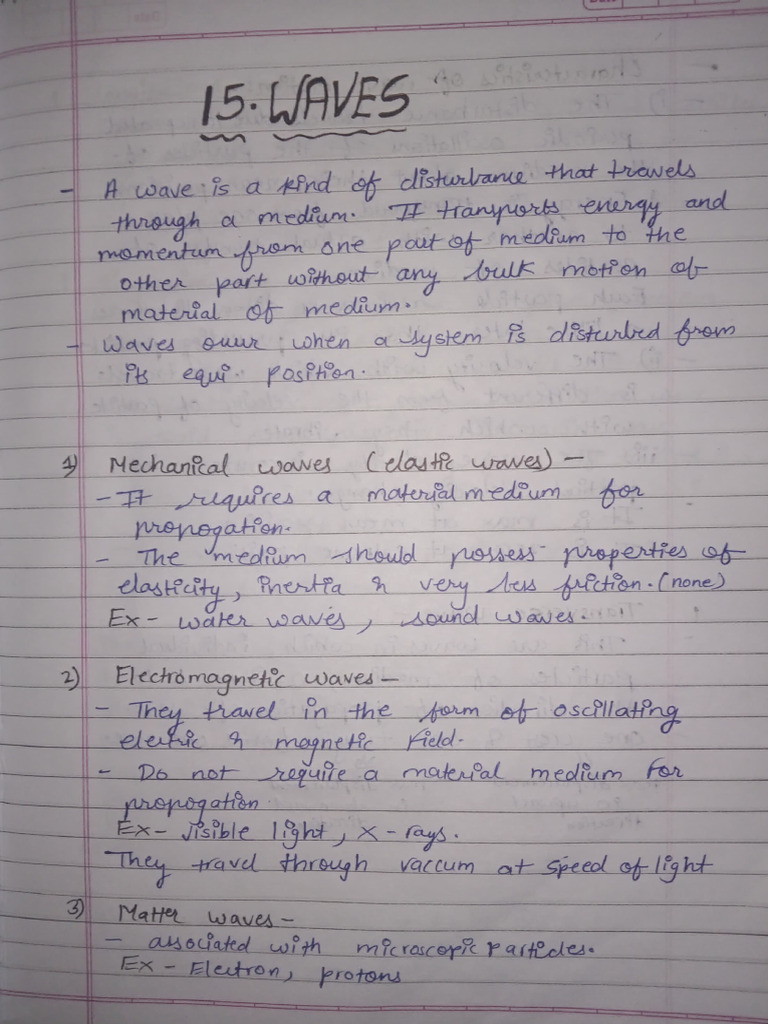 15. WAVES
- A wave is a kind of disturbance that travels
through a medium. It transports energy and
momentum from one part of medium to the
other part without any bulk motion of
material of medium.
- Waves ouur when a system is disturbed from
its equi. position.
1) Mechanical waves (elastic waves) -
- It requires a material medium for
propogation.
- The medium should possess properties of
elasticity, inertia & very less friction. (none)
Ex - water waves, sound waves.
2) Electromagnetic waves -
- They travel in the form of oscillating
electric & magnetic field.
- Do not require a material medium for
propogation
Ex - Visible light, X-rays.
They travel through vaccum at speed of light
3) Matter waves -
- associated with microscopic particles.
Ex - Electron, protons